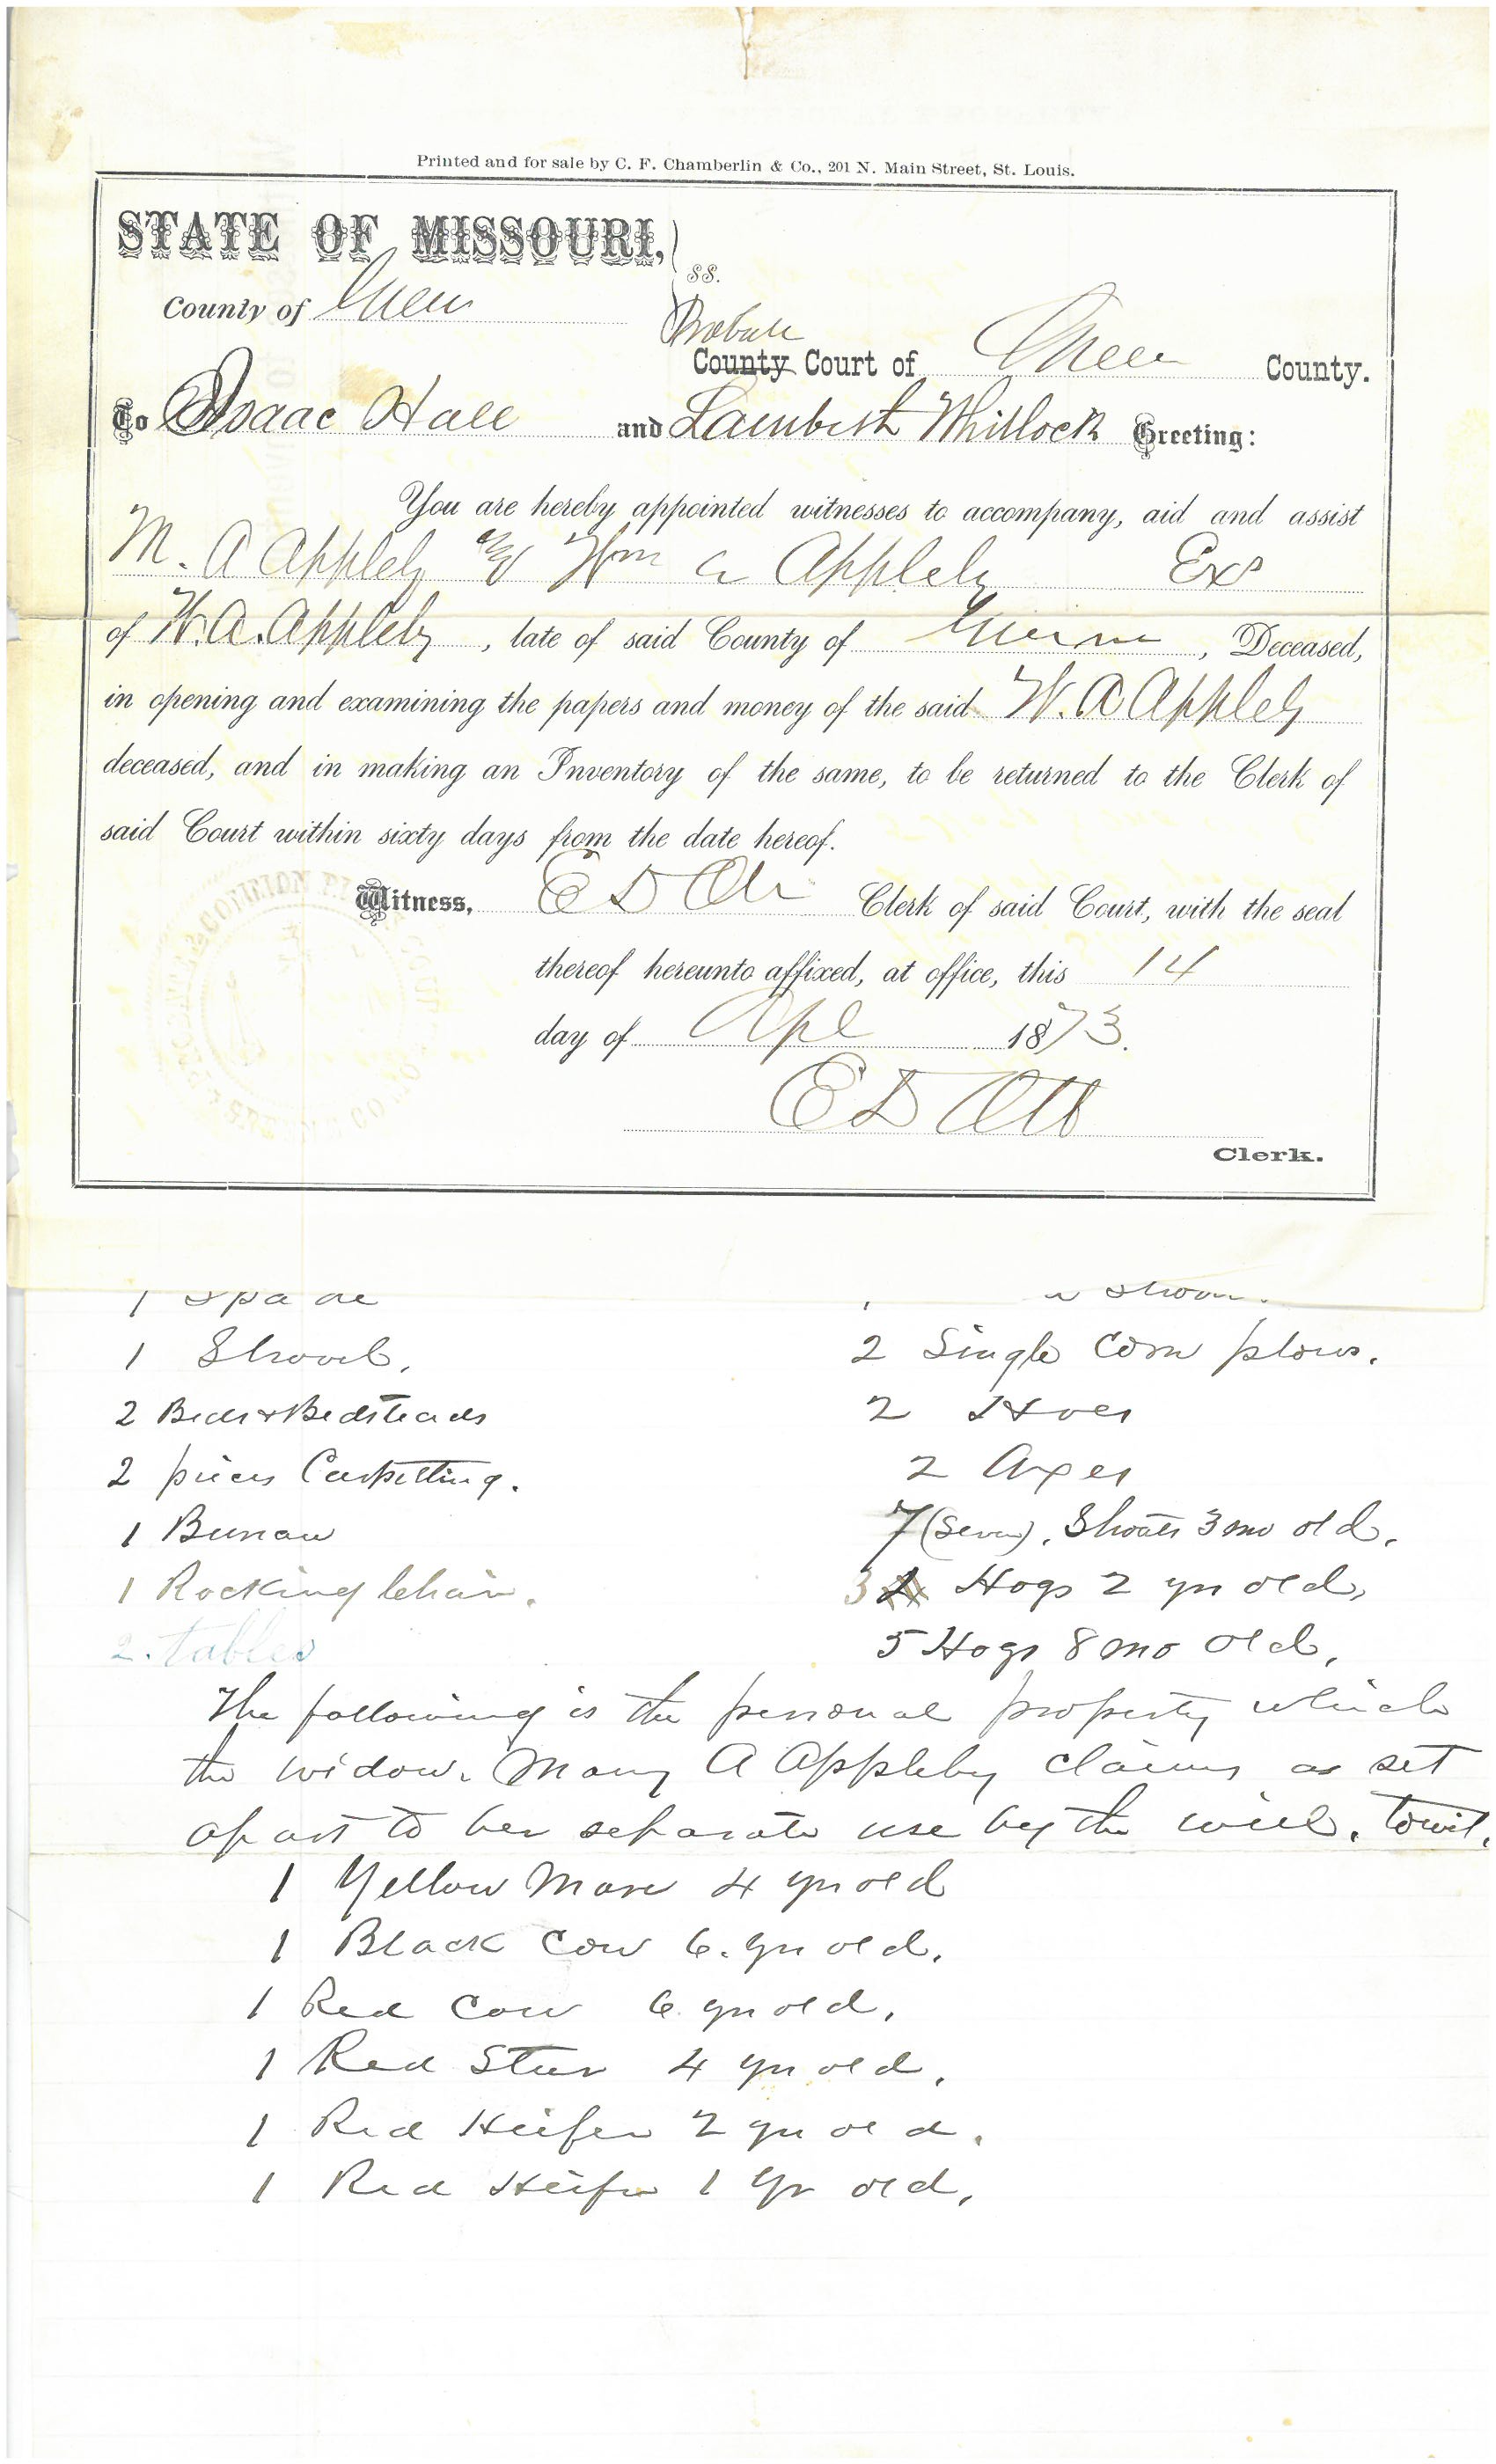 Printed and for sale by C. F. Chamberlin & Co., 201 N. Main Street, St. Louis.
STATE OF MISSOURI,
ss.
County of Green
Probate
County Court of Green County.
To Isaac Hall and Lambert Whitlock Greeting:
You are hereby appointed witnesses to accompany, aid and assist
M. A Appleby & Wm A Appleby Exs
of W. A. Appleby, late of said County of Greene, Deceased,
in opening and examining the papers and money of the said W. A Appleby
deceased, and in making an Inventory of the same, to be returned to the Clerk of
said Court within sixty days from the date hereof.
Witness, E D Ott Clerk of said Court, with the seal
thereof hereunto affixed, at office, this 14
day of Apl 1873.
E D Ott
Clerk.
1 Spade
1 Shovel. 2 Single Corn plows.
2 Beds & Bedsteads 2 Hoes
2 pieces Carpetting. 2 Axes
1 Bureau 7 (Seven), Shoats 3 mo old.
1 Rocking Chair. 3 Hogs 2 yrs old,
2. tables 5 Hogs 8 mo old,
The following is the personal property which
the widow. Mary A Appleby claims as set
apart to her separate use by the will. towit,
1 Yellow Mare 4 yrs old
1 Black Cow 6. yrs old.
1 Red Cow 6 yrs old.
1 Red Steer 4 yrs old.
1 Red Heifer 2 yrs old.
1 Red Heifer 1 yr old.